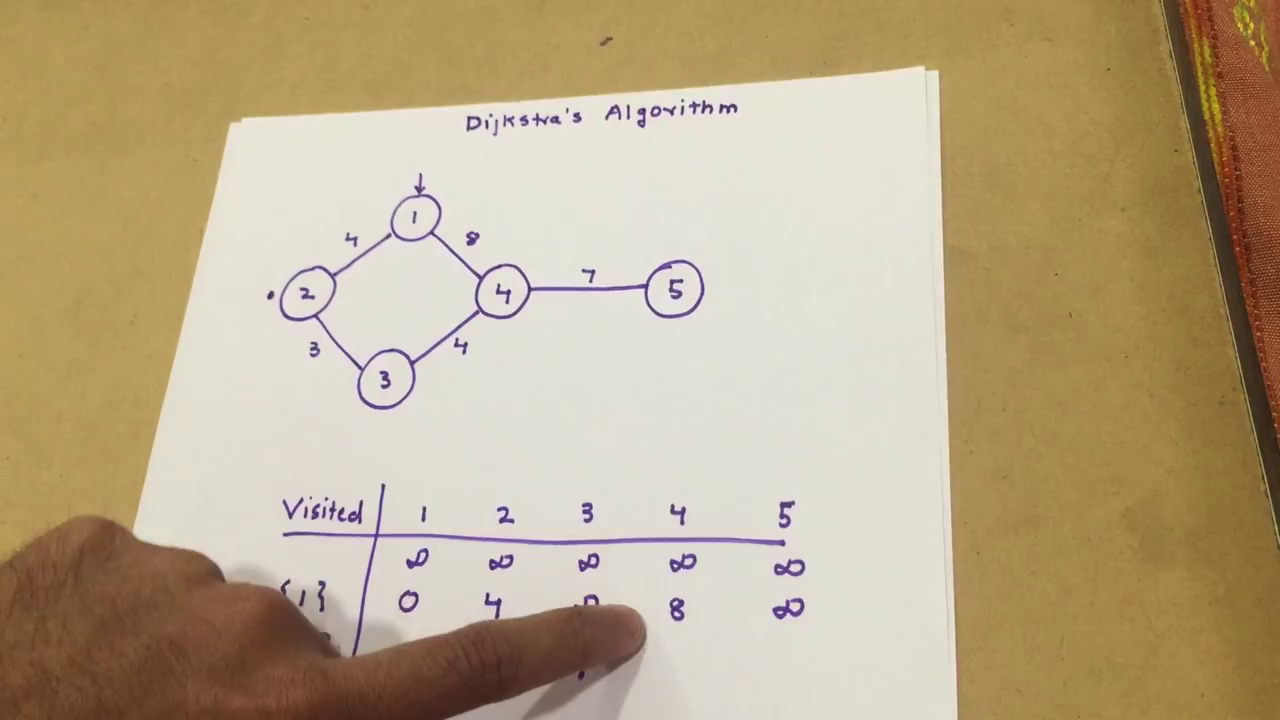 Dijkstra's Algorithm
1
4 8
2 4 7 5
3 4
3
Visited 1 2 3 4 5
∞ ∞ ∞ ∞ ∞
{1} 0 4 8 ∞